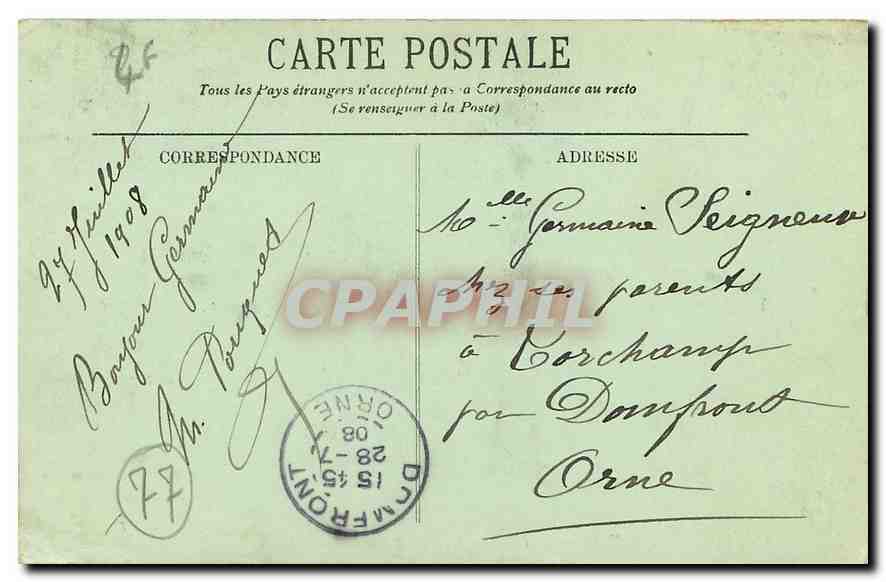 4F
CARTE POSTALE
Tous les Pays étrangers n'acceptent pas la Correspondance au recto
(Se renseigner à la Poste)
CORRESPONDANCE
27 Juillet
1908
Bonjour Germaine
M. Pouquet
77
DOMFRONT
15 45
28 - 7
08
ORNE
ADRESSE
Mlle Germaine Seigneur
chez ses parents
à Torchamp
par Domfront
Orne
CPAPHIL